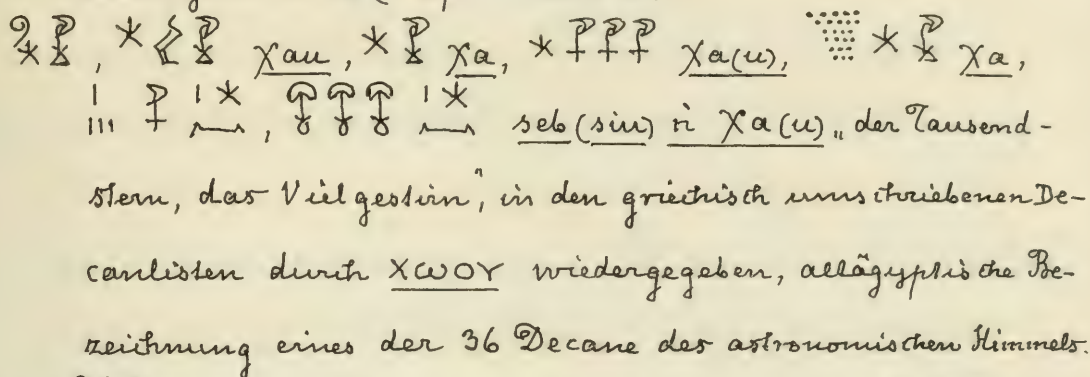 χau, χa, χa(u), χa,
seb (siu) n χa(u) „der Tausend-
stern, das Vielgestirn", in den griechisch umschriebenen De-
canlisten durch ΧωΟΥ wiedergegeben, altägyptische Be-
zeichnung eines der 36 Decane des astronomischen Himmels.